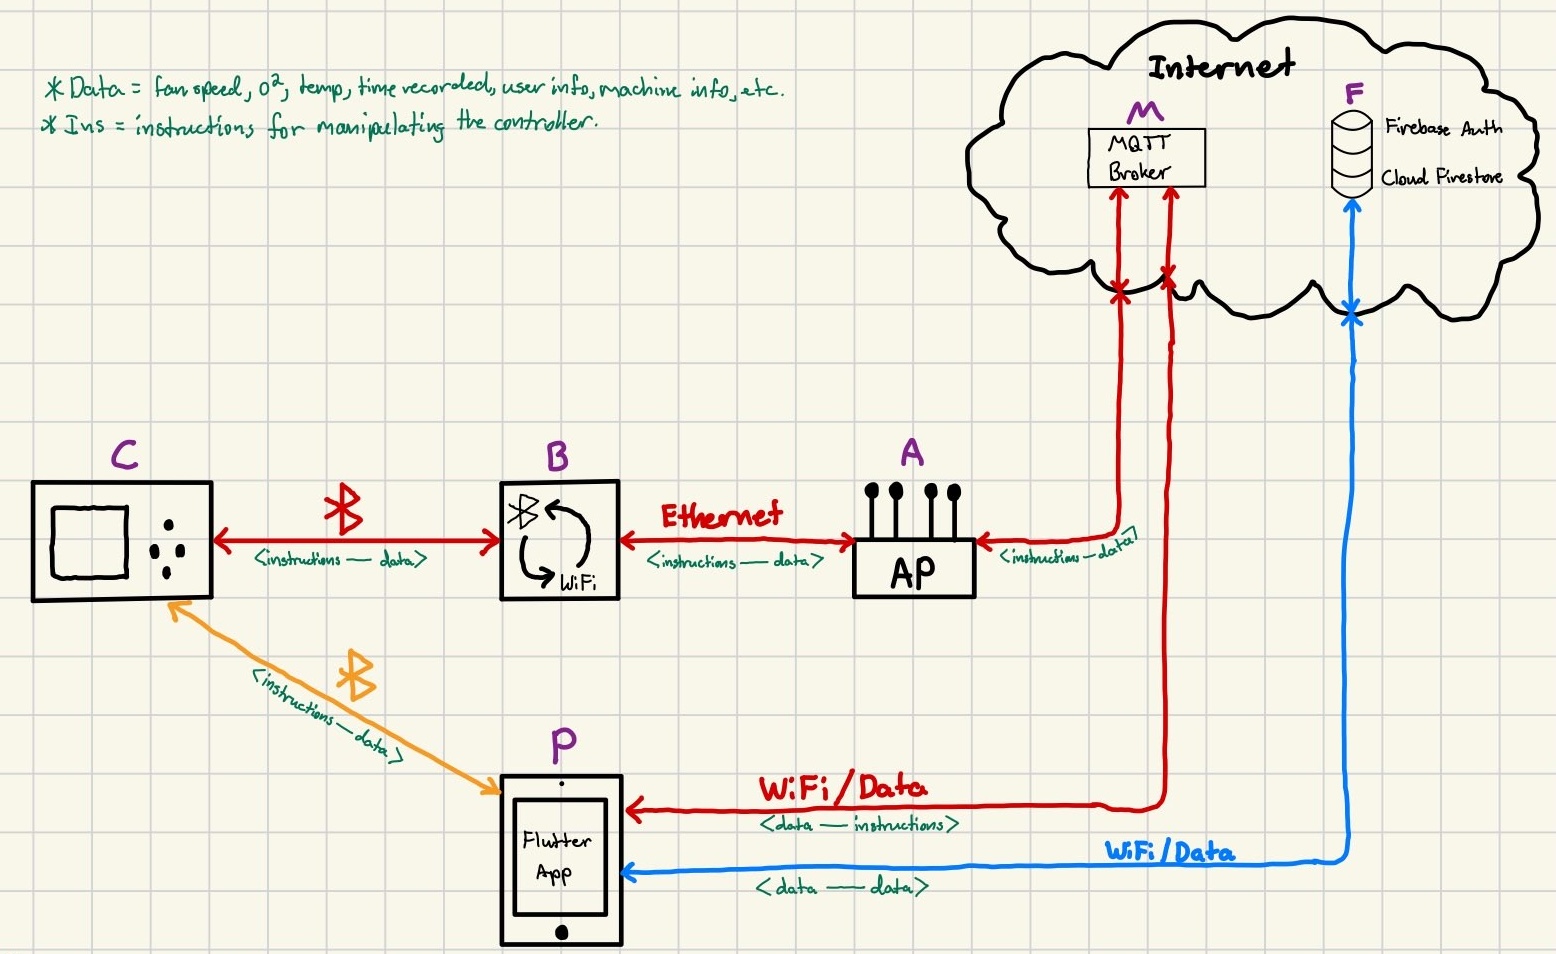 * Data = fan speed, O², temp, time recorded, user info, machine info, etc.
* Ins = instructions for manipulating the controller.
Internet
M
MQTT
Broker
F
Firebase Auth
Cloud Firestore
C
<instructions — data>
B
WiFi
Ethernet
<instructions — data>
A
AP
<instructions — data>
<instructions — data>
P
Flutter
App
WiFi/Data
<data — instructions>
WiFi/Data
<data — data>